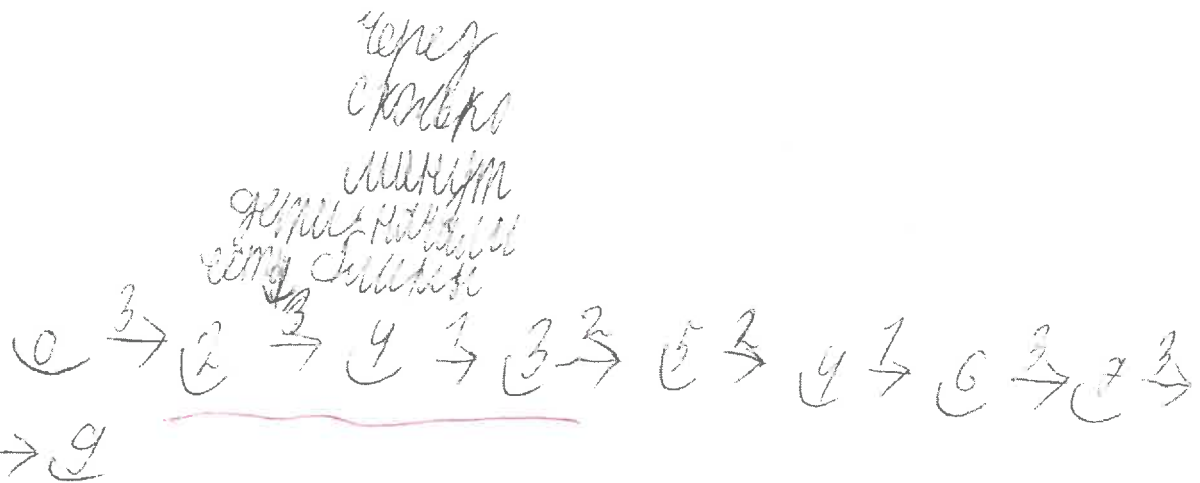 через
сколько
минут
дети начали
есть блины
0 3→ 2 3→ 4 1→ 3 2→ 5 2→ 4 1→ 6 3→ 7 3→
→ 9